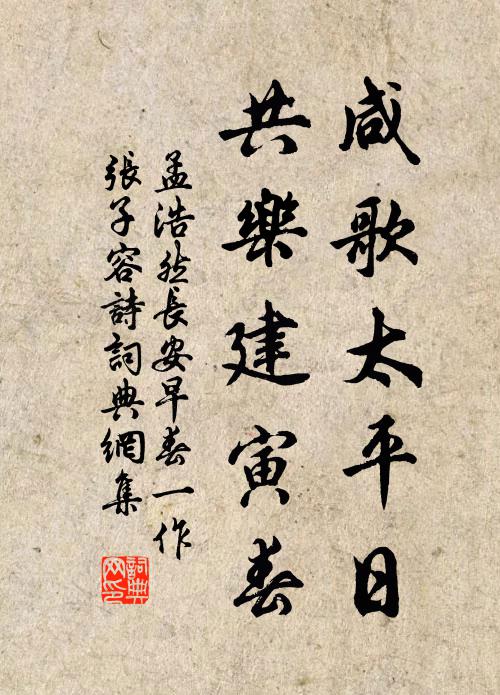 咸歌太平日
共樂建寅春
孟浩然長安早春一作
張子容詩詞典網集
詞典
网印